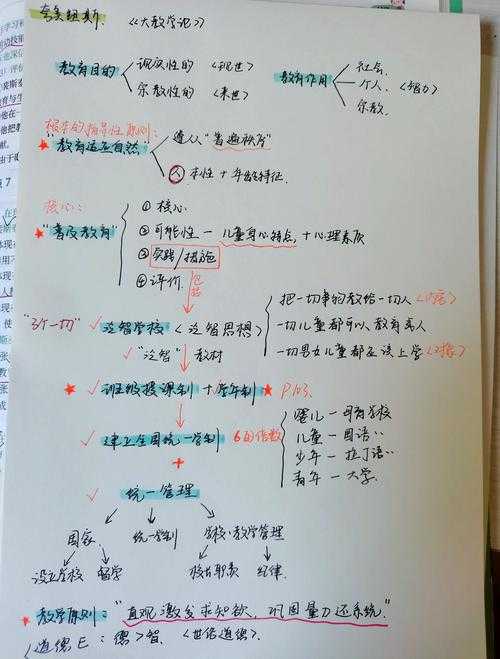 夸美纽斯. 《大教学论》
教育目的 现实性的 <现世>
宗教性的 <来世>
教育作用 社会.
个人. <智力>
宗教.
根本的指导性原则:
★"教育适应自然" 遵从"普遍秩序"
人 本性+年龄特征.
核心:
★"普及教育" ① 核心
②可能性—儿童身心特点,+心理素质
③实践/措施
④评价 包括
"3个一切" ✓泛智学校<泛智思想>
把一切事物教给一切人
一切儿童都可以教育成人
一切男女儿童都应该上学
✓"泛智"教材
★ ✓班级授课制+学年制★ P103.
✓建立全国统一学制 6的倍数
婴儿—母育学校
儿童—国语‥
少年—拉丁语‥
青年—大学.
+
✓ 统一管理
国家. 统一学制 学校·教学管理
设立学校 督学 校长职责 纪律.
★教学原则:"直观激发求知欲,巩固量力还系统."
(道德E:德>智. <世俗道德>.